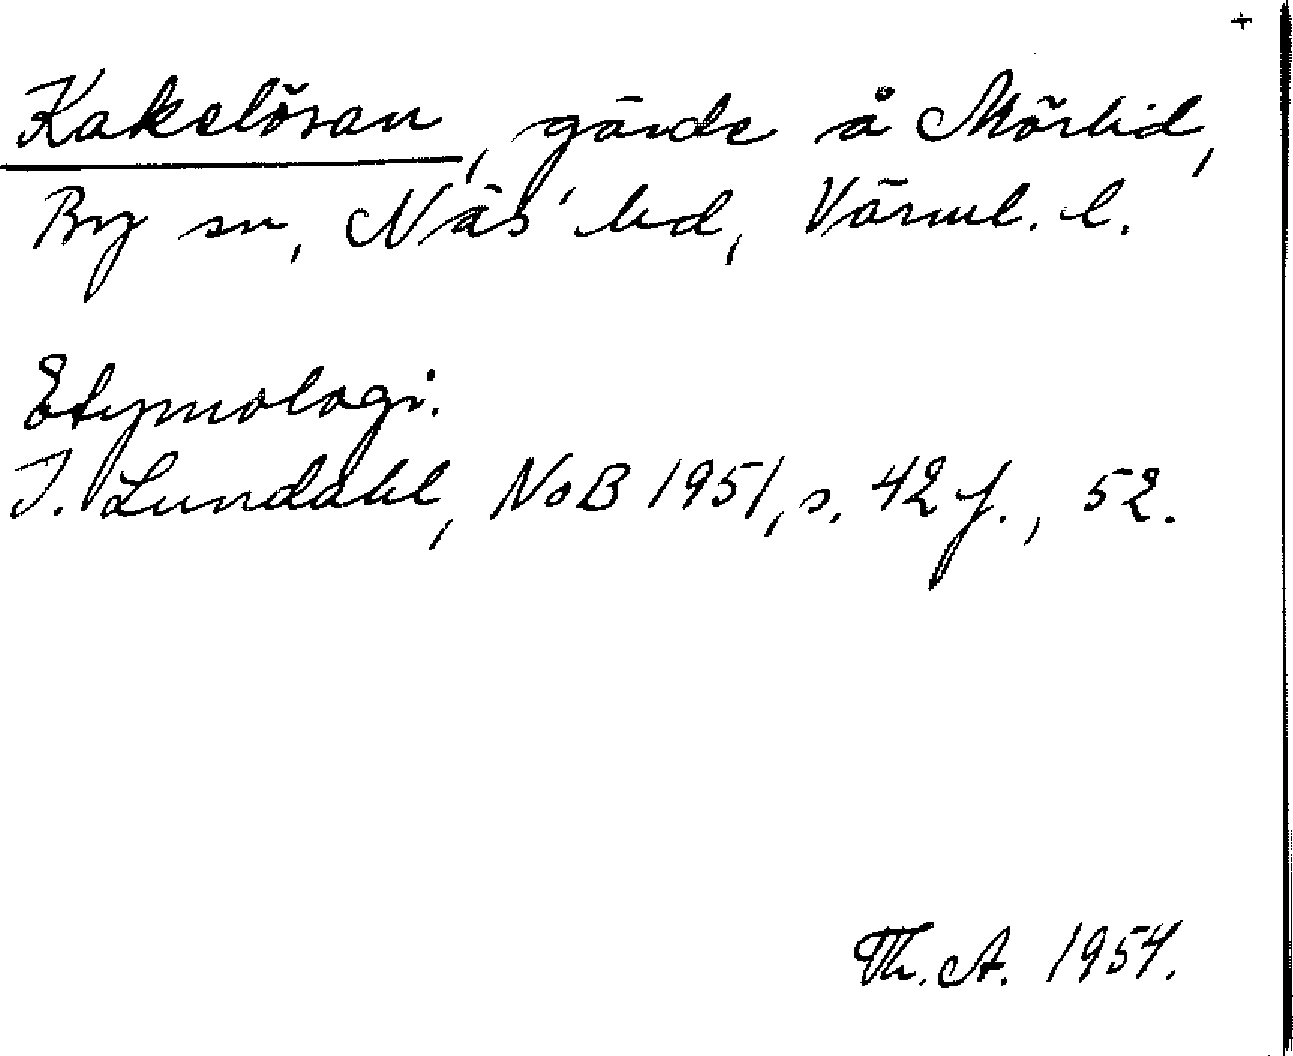 +
Kakelösan, gärde å Mörlid,
By sn, Näs' hd, Värml. l.
Etymologi.
I. Lundahl, NoB 1951, s. 42 f., 52.
Th. A. 1954.